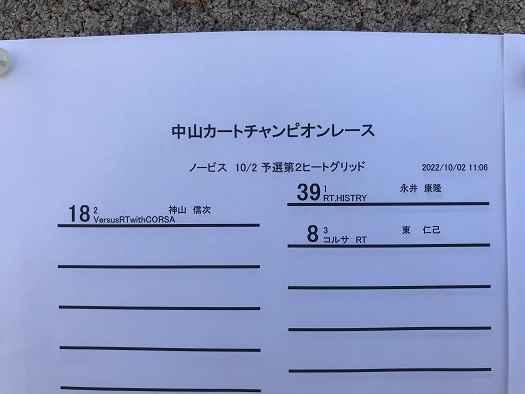 中山カートチャンピオンレース
ノービス 10/2 予選第2ヒートグリッド 2022/10/02 11:06
39 1 永井 康隆
RT.HISTRY
18 2 神山 信次
VersusRTwithCORSA
8 3 東 仁己
コルサ RT